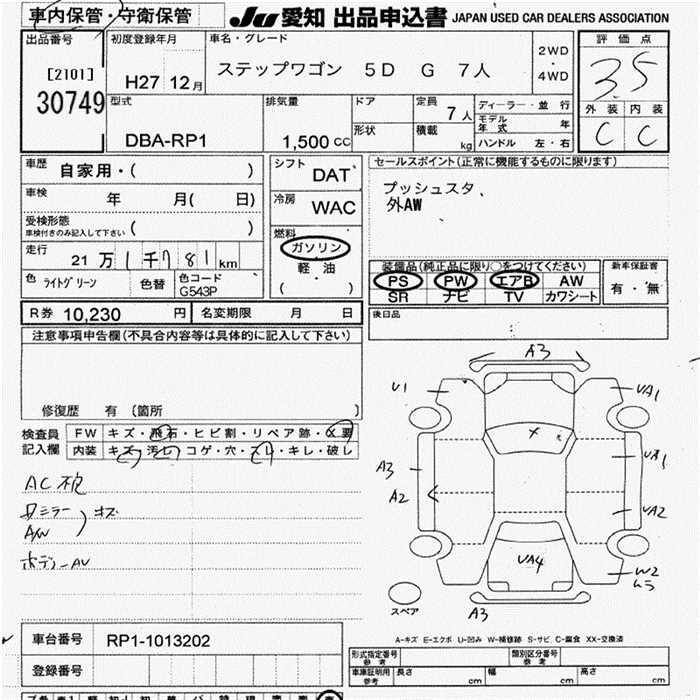 車内保管・守衛保管
JU 愛知 出品申込書 JAPAN USED CAR DEALERS ASSOCIATION
出品番号 初度登録年月 車名・グレード 2WD・4WD 評価点
[2101] 30749 H27 12月 ステップワゴン 5D G 7人 3.5
型式 排気量 ドア 定員 7人 ディーラー・並行 外装 内装
形状 積載 kg モデル年式 年
DBA-RP1 1,500 CC ハンドル 左・右 C C
車歴 自家用・( ) シフト DAT セールスポイント(正常に機能するものに限ります)
車検 年 月( 日) 冷房 WAC プッシュスタ、
外AW
受検形態 車検付きのみ記入して下さい ( ) 燃料 ガソリン
走行 21万1千781km 軽油 ( )
装備品(純正品に限り○をつけてください) 新車保証書
色 ライトグリーン 色替 色コード G543P PS PW エアB AW 有・無
SR ナビ TV カワシート
R券 10,230 円 名変期限 月 日 後日品
注意事項申告欄(不具合内容等は具体的に記入して下さい)
修復歴 有 〔箇所 〕
検査員記入欄 FW キズ・飛石・ヒビ割・リペア跡・X要
内装 キズ・汚レ・コゲ・穴・スレ・キレ・破レ
A3
U1
VA1
A3
A2
VA2
VA4
W2
ムラ
A3
スペア
ミラー
AW
キズ
ボディーAU
A-キズ E-エクボ U-凹み W-補修跡 S-サビ C-腐食 XX-交換済
車台番号 RP1-1013202
登録番号
形式指定番号 参考 類別区分番号 参考
車庫証明用 参考 長さ cm 幅 cm 高さ cm